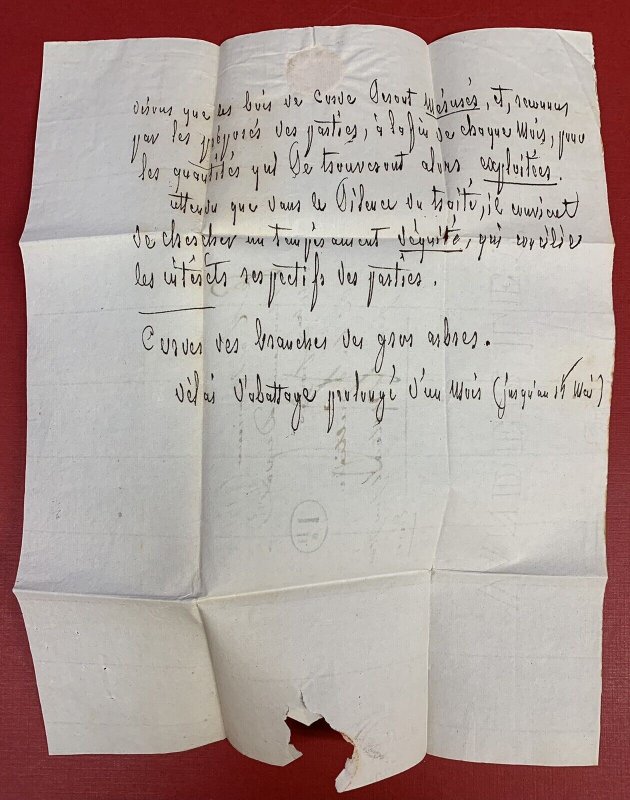 disons que les bois de corde seront mesurés, et, reconnus
par les préposés des parties, à la fin de chaque mois, pour
les quantités qui se trouveront alors exploitées.
attendu que dans le silence du traité, il convient
de chercher un tempérament d'équité, qui concilie
les intérêts respectifs des parties.
Cordes des branches des gros arbres.
délai d'abattage prolongé d'un mois (jusqu'au 15 mai)